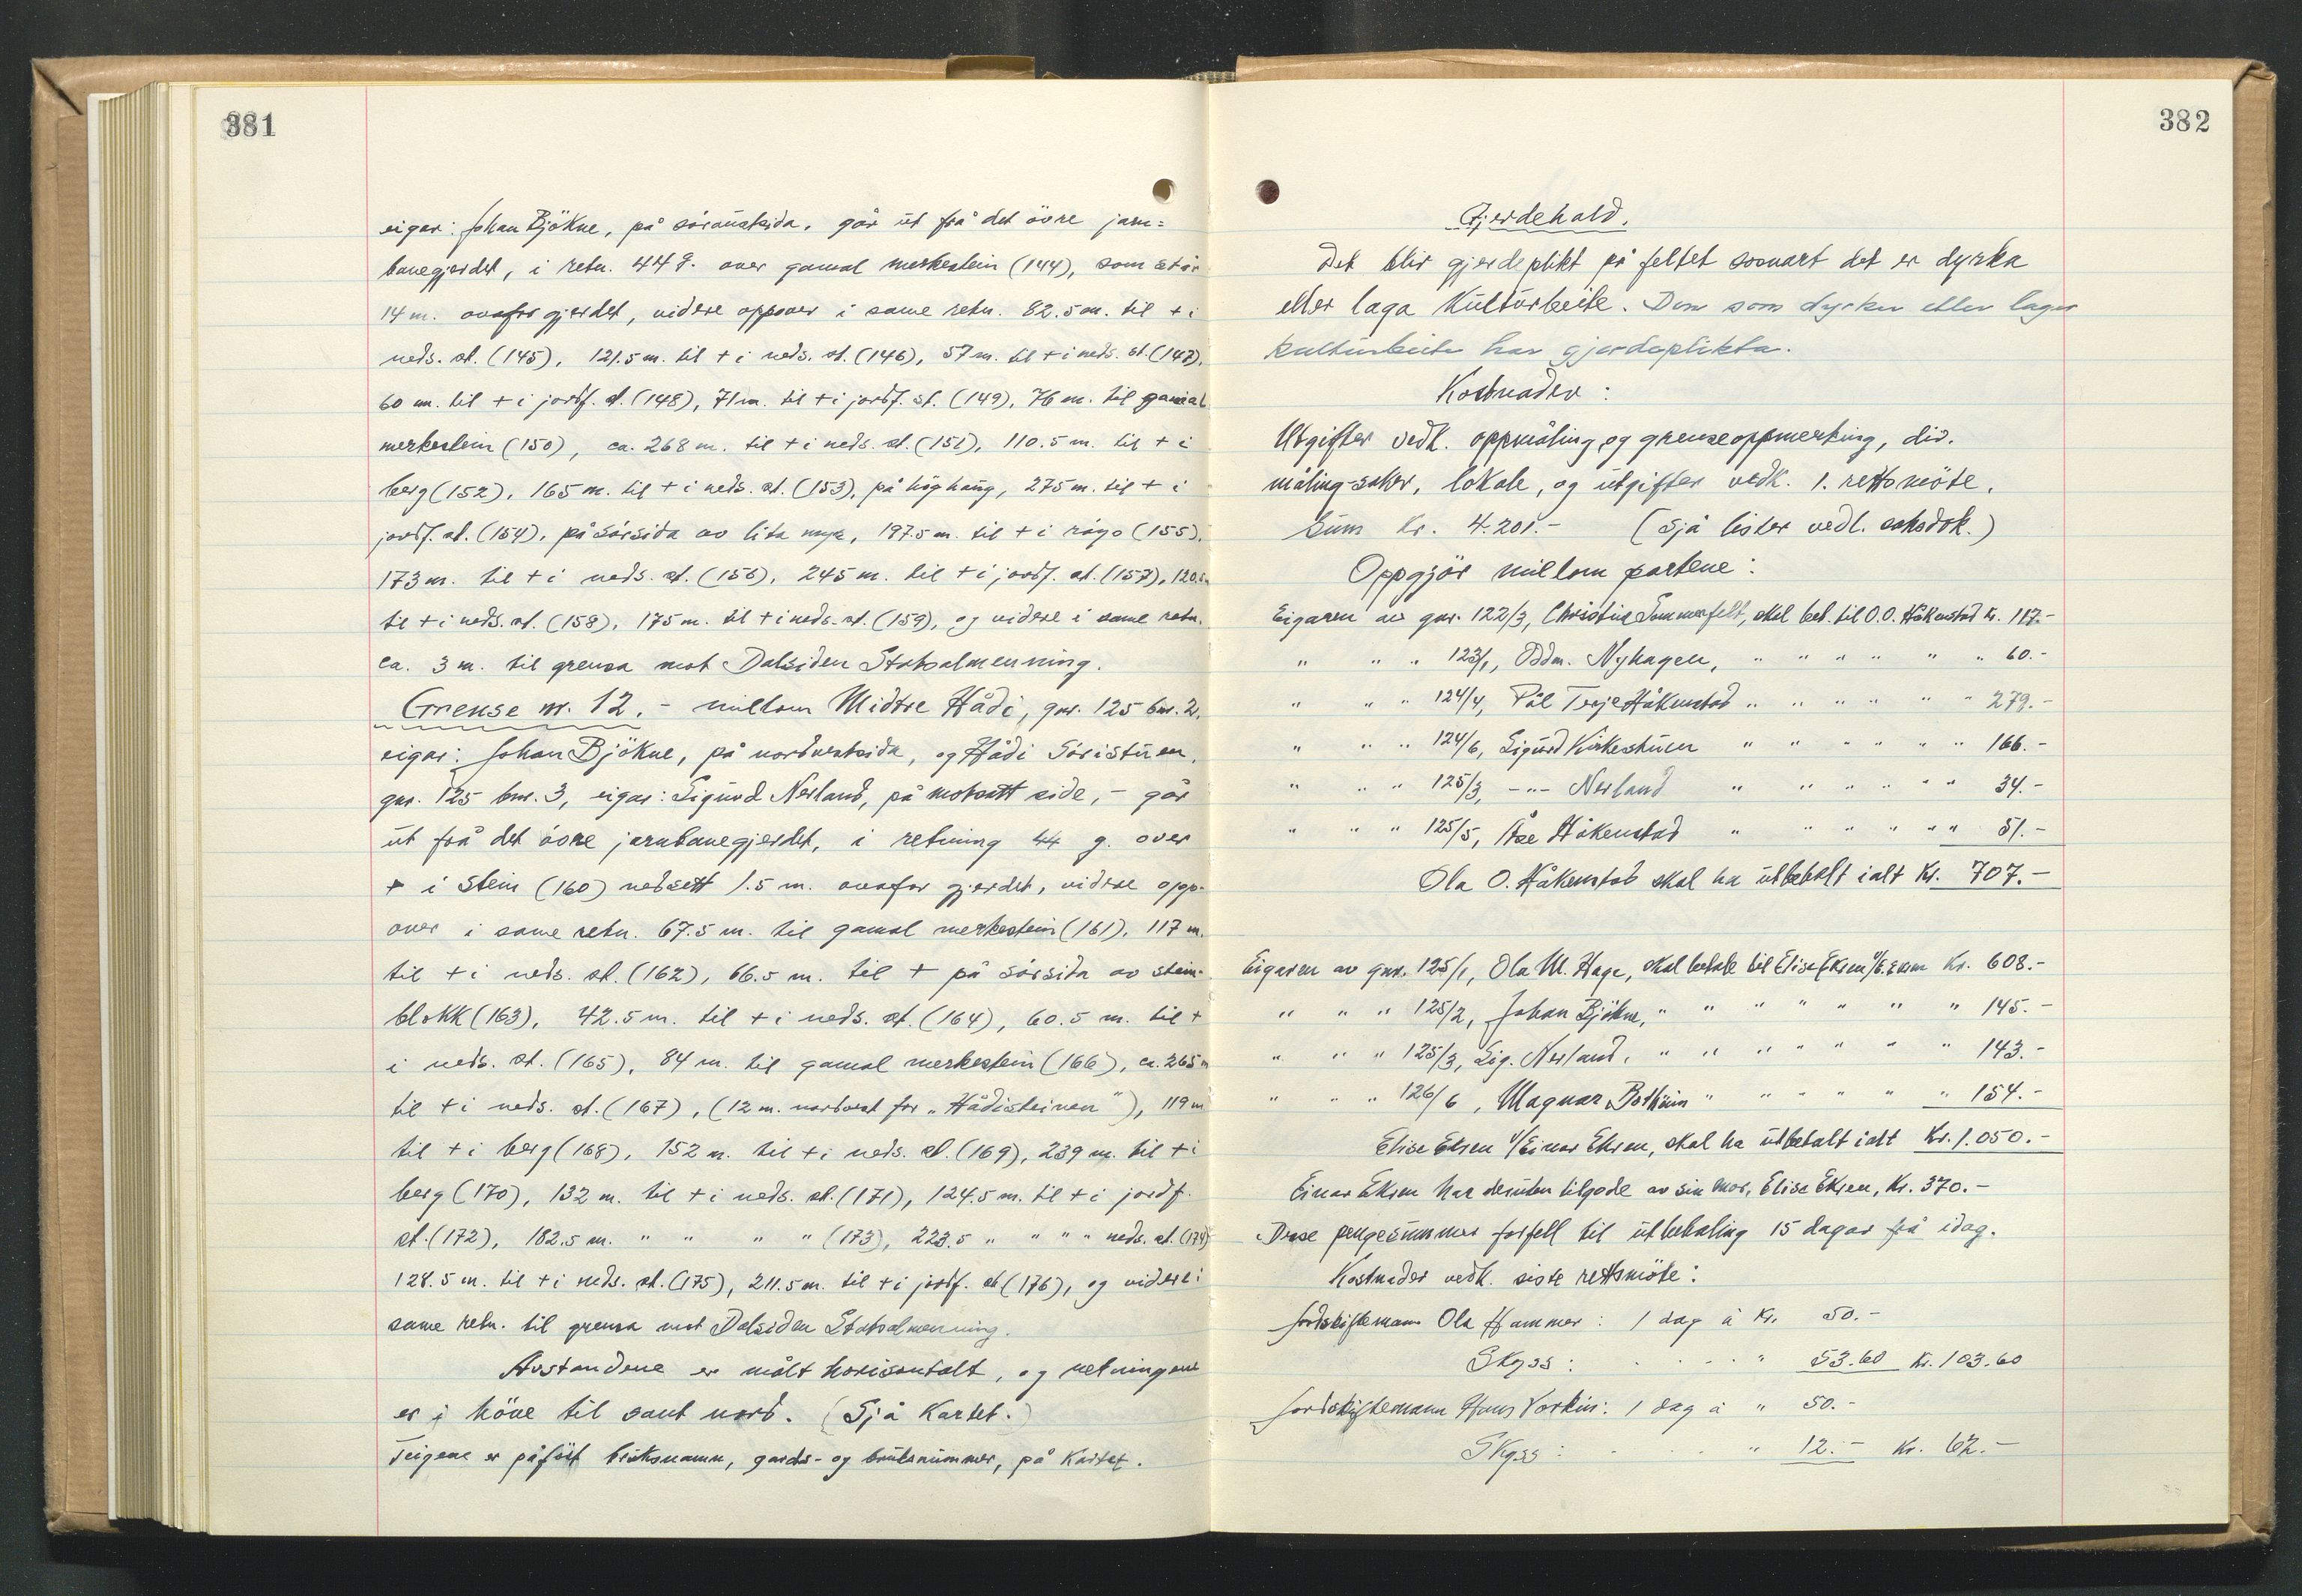 381
eigar: Johan Bjökne, på söraustsida, går ut frå det övre jarn=
banegjerdet, i retn. 44 g. over gamal merkestein (144), som står
14 m. ovafor gjerdet, videre oppover i same retn. 82.5 m. til + i
neds. st. (145), 121.5 m. til + i neds. st. (146), 57 m. til + i neds. st. (147),
60 m. til + i jordf. st. (148), 71 m. til + i jordf. st. (149), 76 m. til gamal
merkestein (150), ca. 268 m. til + i neds. st. (151), 110.5 m. til + i
berg (152), 165 m. til + i neds. st. (153), på höghaug, 275 m. til + i
jordf. st. (154), på sörsida av lita myr, 197.5 m. til + i (155),
173 m. til + i neds. st. (156), 245 m. til + i jordf. st. (157), 120.5 m
til + i neds. st. (158), 175 m. til + i neds. st. (159), og videre i same retn.
ca. 3 m. til grensa mot Dalsiden Statsalmenning.
Grense nr. 12. - millom Midtre Hådi, gnr. 125 bnr. 2,
eigar: Johan Bjökne, på nordvestsida, og Hådi Söristuen,
gnr. 125 bnr. 3, eigar: Sigurd Nerland, på motsatt side, - går
ut frå det övre jarnbanegjerdet, i retning 44 g. over
+ i stein (160) nedsett 1.5 m. ovafor gjerdet, videre opp-
over i same retn. 67.5 m. til gamal merkestein (161), 117 m.
til + i neds. st. (162), 66.5 m. til + på sörsida av stein-
blokk (163), 42.5 m. til + i neds. st. (164), 60.5 m. til +
i neds. st. (165), 84 m. til gamal merkestein (166), ca. 265 m
til + i neds. st. (167), (12 m. nordvest for „Hådisteinen"), 119 m
til + i berg (168), 152 m. til + i neds. st. (169), 239 m. til + i
berg (170), 132 m. til + i neds. st. (171), 124.5 m. til + i jordf.
st. (172), 182.5 m. " " " " (173), 223.5 " " " " neds. st. (174)
128.5 m. til + i neds. st. (175), 211.5 m. til + i jordf. st (176), og videre i
same retn. til grensa mot Dalsiden Statsalmenning.
Avstandene er målt horisontalt, og retningene
er i höve til sant nord. (Sjå Kartet.)
Teigene er påfört bruksnamn, gards- og bruksnummer, på Kartet.
382
Gjerdehald.
Det blir gjerdeplikt på feltet sosnart det er dyrka
eller laga Kulturbeite. Den som dyrker eller lager
kulturbeite har gjerdeplikta.
Kostnader:
Utgifter vedk. oppmåling og grenseoppmerking, div.
måling-saker, lokale, og utgifter vedk. 1. rettsmöte.
Sum Kr. 4.201.- (Sjå lister vedl. saksdok.)
Oppgjör millom partene:
Eigaren av gnr. 122/3, Christine Sommerfelt, skal bet. til O.O. Håkenstad Kr. 117.-
" " " 123/1, Oddm. Nyhagen, " " " " " " 60.-
" " " 124/4, Pål Terje Håkenstad " " " " " " 279.-
" " " 124/6, Sigurd Kirkestuen " " " " " " 166.-
" " " 125/3, -"- Nerland " " " " " " 34.-
" " " 125/5, Åse Håkenstad " " " " " " 51.-
Ola O. Håkenstad skal ha utbetalt ialt Kr. 707.-
Eigaren av gnr. 125/1, Ola M. Hage, skal betale til Elise Eksen v/E. Eksen Kr. 608.-
" " " 125/2, Johan Bjökne, " " " " " " " 145.-
" " " 125/3, Sig. Nerland, " " " " " " " 143.-
" " " 126/6, Magnar Botheim " " " " " " 154.-
Elise Eksen v/Einar Eksen, skal ha utbetalt ialt Kr. 1.050.-
Einar Eksen har desuten tilgode av sin mor, Elise Eksen, Kr. 370.-
Disse pengesummer forfell til utbetaling 15 dagar frå idag.
Kostnader vedk. siste rettsmöte:
Jordskiftemann Ola Hammer: 1 dag à Kr. 50.-
Skyss: . . . . " 53.60 Kr. 103.60
Jordskiftemann Hans Vorkin: 1 dag à " 50.-
Skyss: . . . " 12.- Kr. 62.-